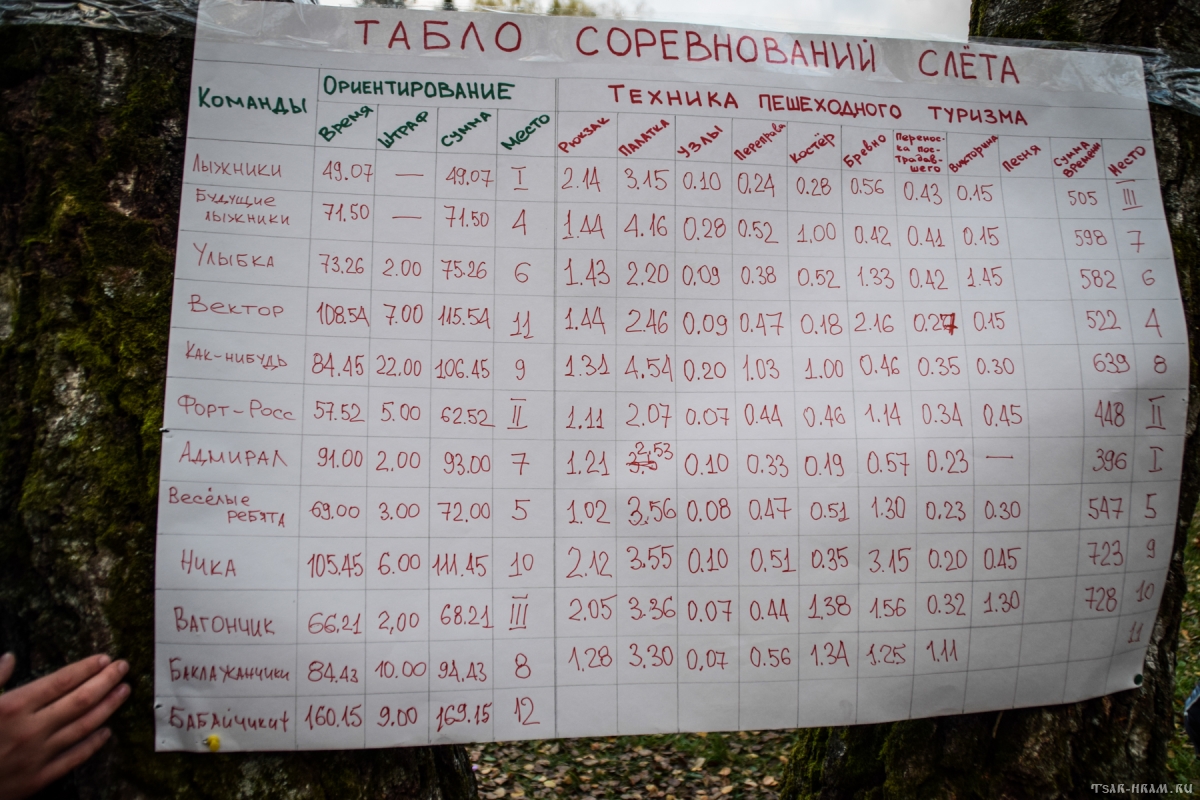 ТАБЛО СОРЕВНОВАНИЙ СЛЁТА
Команды Ориентирование Техника пешеходного туризма
Время Штраф Сумма Место Рюкзак Палатка Узлы Переправа Костёр Бревно Перенос-ка пос-традав-шего Викторина Песня Сумма времени Место
Лыжники 49.07 — 49.07 I 2.14 3.15 0.10 0.24 0.28 0.56 0.43 0.15 505 III
Будущие лыжники 71.50 — 71.50 4 1.44 4.16 0.28 0.52 1.00 0.42 0.41 0.15 598 7
Улыбка 73.26 2.00 75.26 6 1.43 2.20 0.09 0.38 0.52 1.33 0.42 1.45 582 6
Вектор 108.54 7.00 115.54 11 1.44 2.46 0.09 0.47 0.18 2.16 0.27 0.15 522 4
Как-нибудь 84.45 22.00 106.45 9 1.31 4.54 0.20 1.03 1.00 0.46 0.35 0.30 639 8
Форт-Росс 57.52 5.00 62.52 II 1.11 2.07 0.07 0.44 0.46 1.14 0.34 0.45 448 II
Адмирал 91.00 2.00 93.00 7 1.21 2.53 0.10 0.33 0.19 0.57 0.23 — 396 I
Весёлые ребята 69.00 3.00 72.00 5 1.02 3.56 0.08 0.47 0.51 1.30 0.23 0.30 547 5
Ника 105.45 6.00 111.45 10 2.12 3.55 0.10 0.51 0.35 3.15 0.20 0.45 723 9
Вагончик 66.21 2,00 68.21 III 2.05 3.36 0.07 0.44 1.38 1.56 0.32 1.30 728 10
Баклажанчики 84.43 10.00 94.43 8 1.28 3.30 0.07 0.56 1.34 1.25 1.11 11
Бабайчики 160.15 9.00 169.15 12
Tsar-hram.ru